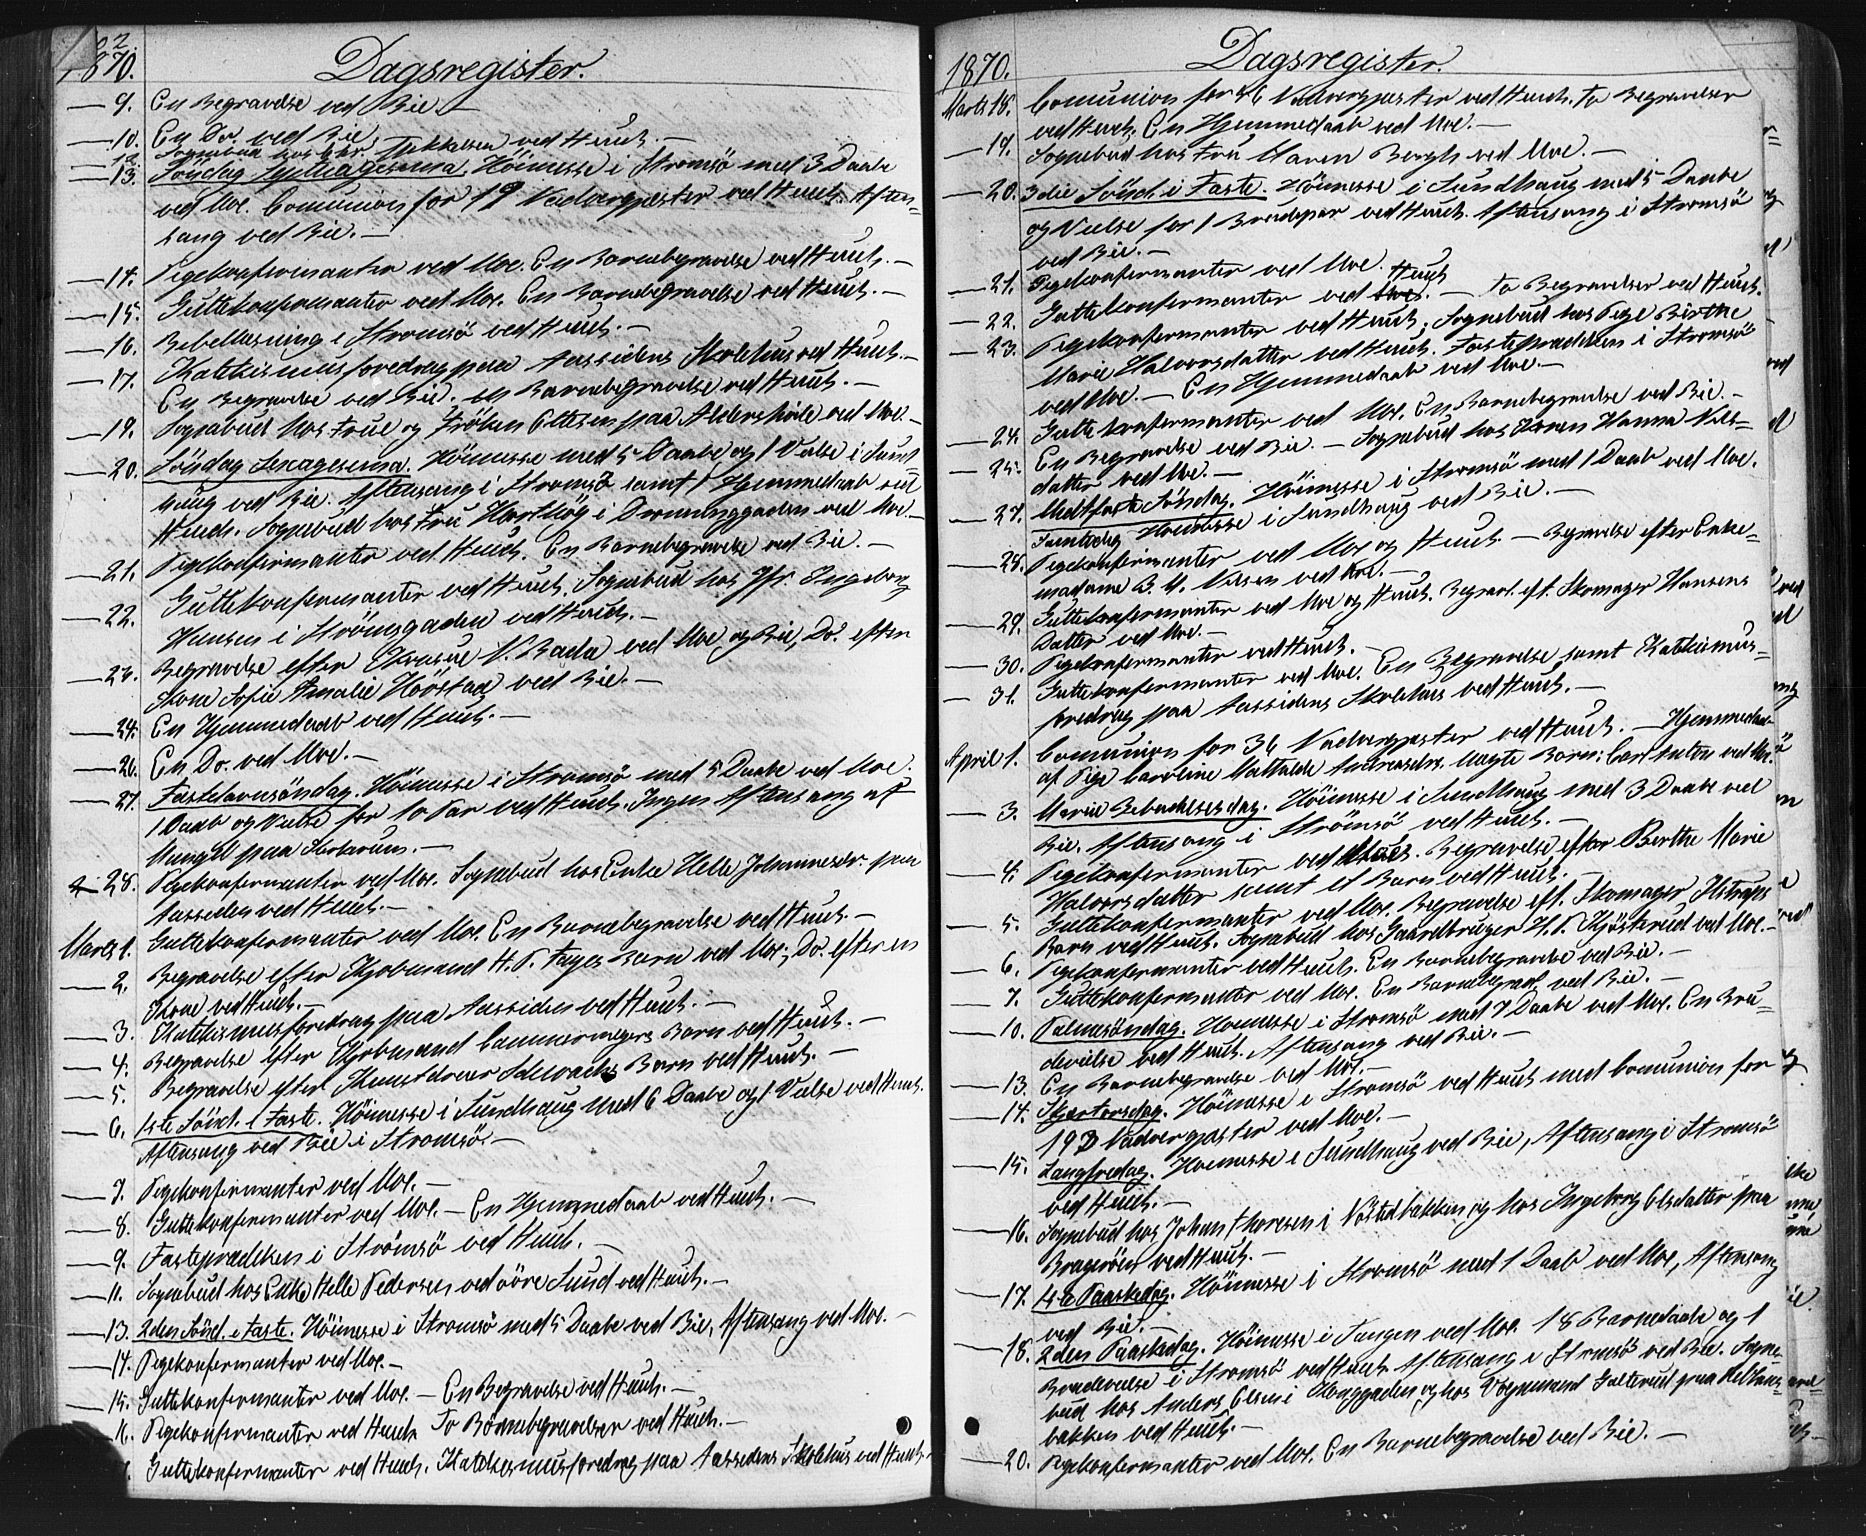 82.
1870. Dagsregister.
— 9. En Begravelse ved Bie. —
— 10. En Do. ved Bie.
— 12. Sognebud hos Tykkesen ved Huuh. —
— 13. Söndag Septuagesima. Höimesse i Stromsö med 3 Daabe
ved Moe. Comunion for 19 Nadvergjester ved Huuh. Aften-
sang ved Bie. —
— 14. Pigekonfirmanter ved Moe. En Barnebegravelse ved Huuh. —
— 15. Guttekonfirmanter ved Moe. En Barnebegravelse ved Huuh. —
— 16. Bibellæsning i Stromsö ved Huuh. —
— 17. Katekismusforedrag paa Aassidens Skolehus ved Huuh. —
En Begravelse ved Bie. en Barnebegravelse ved Huuh. —
— 19. Sognebud hos Frue og Fröken Ottesen paa Aldershvile ved Moe. —
— 20. Söndag Sexagesima. Höimesse med 5 Daabe og 1 Vielse i Sund-
haug ved Bie. Aftensang i Stromsö samt 1 Hjemmedaab ved
Huuh. Sognebud hos Fru Hartlög i Dronninggaden ved Moe. —
— 21. Pigekonfirmanter ved Huuh. En Barnebegravelse ved Bie. —
— 22. Guttekonfirmanter ved Huuh. Sognebud hos Jfr. Ingeborg
Hansen i Strömsgaden ved Huuh. —
— 23. Begravelse efter N. Bada ved Moe og Bie, Do. efter
Kone Sofie Amalie Höistad ved Bie. —
— 24. En Hjemmedaab ved Huuh. —
— 26. En Do. ved Moe. —
— 27. Fastelavnsöndag. Höimesse i Stromsö med 5 Daabe ved Moe.
1 Daab og Vielse for to Par ved Huuh. Ingen Aftensang af
Mangel paa Auditorium. —
— 28. Pigekonfirmanter ved Moe. Sognebud hos Enke Helle Johannesdr. paa
Aassiden ved Huuh. —
Marts 1. Guttekonfirmanter ved Moe. En Barnebegravelse ved Huuh. —
— 2. Begravelse efter Kjobmand H. P. Fayes Barn ved Moe; Do. efter en
Kone ved Huuh. —
— 3. Katekismusforedrag paa Aassiden ved Huuh. —
— 4. Begravelse efter Kjobmand Cammermeyers Barn ved Huuh. —
— 5. Begravelse efter Kunstdreier Schwachs Barn ved Huuh. —
— 6. 1ste Sönd. i Faste. Höimesse i Sundhaug med 6 Daabe og 1 Vielse ved Huuh.
Aftensang ved Bie i Stromsö. —
— 7. Pigekonfirmanter ved Moe. —
— 8. Guttekonfirmanter ved Moe. — En Hjemmedaab ved Huuh. —
— 9. Fastepræken i Strömsö ved Huuh. —
— 11. Sognebud hos Enke Helle Pedersen ved övre Sund ved Huuh. —
— 13. 2den Sönd. i Faste. Höimesse i Stromsö med 5 Daabe ved Bie, Aftensang ved Moe. —
— 14. Pigekonfirmanter ved Moe. —
— 15. Guttekonfirmanter ved Moe. — En Begravelse ved Huuh. —
16. Pigekonfirmanter ved Huuh To Börnebegravelser ved Huuh. —
Guttekonfirmanter ved Huuh. Katekismusforedrag paa Aassidens Skolehus ved Huuh. —
1870. Dagsregister.
Marts 18. Comunion for 46 Nadvergjester ved Huuh. To Begravelser
ved Huuh. En Hjemmedaab ved Moe. —
— 19. Sognebud hos Fru Maren Bergh ved Moe. —
— 20. 3die Sönd. i Faste. Höimesse i Sundhaug med 5 Daabe
og Vielse for 1 Brudepar ved Huuh. Aftensang i Stromsö
ved Bie. —
— 21. Pigekonfirmanter ved Moe. Huuh
— 22. Guttekonfirmanter ved Moe. — To Begravelser ved Huuh.
— 23. Pigekonfirmanter ved Huuh. Sognebud hos Pige Birthe
Marie Halvorsdatter ved Huuh. Fastepræken i Stromsö
ved Moe. — En Hjemmedaab ved Moe —
— 24. Guttekonfirmanter ved Moe. En Barnebegravelse ved Bie. —
— 25. En Begravelse ved Bie. — Sognebud hos Konen Hanna Nils-
datter ved Moe. —
— 27. Midtfaste Söndag. Höimesse i Stromsö med 1 Daab ved Moe.
Samtidig Höimesse i Sundhaug ved Bie. —
— 28. Pigekonfirmanter ved Moe og Huuh — Begravelse efter Enke-
madame B. M. Nilsen ved Moe. —
— 29. Guttekonfirmanter ved Moe og Huuh. Begrav. eft. Skomager Hansens
Datter ved Moe. —
— 30. Pigekonfirmanter ved Huuh. —
— 31. Guttekonfirmanter ved Moe. En Begravelse samt Katekismus-
foredrag paa Aassidens Skolehus ved Huuh. —
April 1. Comunion for 36 Nadvergjester ved Huuh. — Hjemmedaab
af Pige Caroline Mathilde Andreasdrs. uægte Barn: Carl Anton ved Moe.
— 3. Marie Bebudelsesdag. Höimesse i Sundhaug med 3 Daabe ved
Bie. Aftensang i Strömsö ved Huuh. —
— 4. Pigekonfirmanter ved Huuh. Begravelse efter Berthe Marie
Halvorsdatter samt et Barn ved Huuh. —
— 5. Guttekonfirmanter ved Moe. Begravelse eft. Skomager
Barn ved Huuh. Sognebud hos Gaardbruger H. P. Kjösterud ved Moe. —
— 6. Pigekonfirmanter ved Huuh. En Barnebegravelse ved Bie. —
— 7. Guttekonfirmanter ved Moe. En Barnebegrav. ved Bie. —
— 10. Palmesöndag. Höimesse i Stromsö med 7 Daabe ved Moe. En Bru-
devielse ved Huuh. Aftensang ved Bie. —
— 13. En Barnebegravelse ved Moe. —
— 14. Skjærtorsdag. Höimesse i Stromsö ved Huuh med Comunion for
193 Nadvergjester ved Moe. —
— 15. Langfredag. Höimesse i Sundhaug ved Bie, Aftensang i Stromsö
ved Huuh. —
— 16. Sognebud hos Johan Thoresen i Nöstedbakken og hos Ingeborg Olsdatter paa
Bragerøen ved Huuh. —
— 17. 1ste Paaskedag. Höimesse i Stromsö med 1 Daab ved Moe, Aftensang
ved Bie. —
— 18. 2den Paaskedag. Höimesse i Tangen ved Moe. 18 Barnedaabe og 1
Brudevielse i Stromsö ved Huuh Aftensang i Stromsö ved Bie. Sogne-
bud hos Anders Olsen i Konggaden og hos Vognmand Galterud paa
bakken ved Huuh. —
— 20. Pigekonfirmanter ved Moe. En Barnebegravelse ved Bie. —